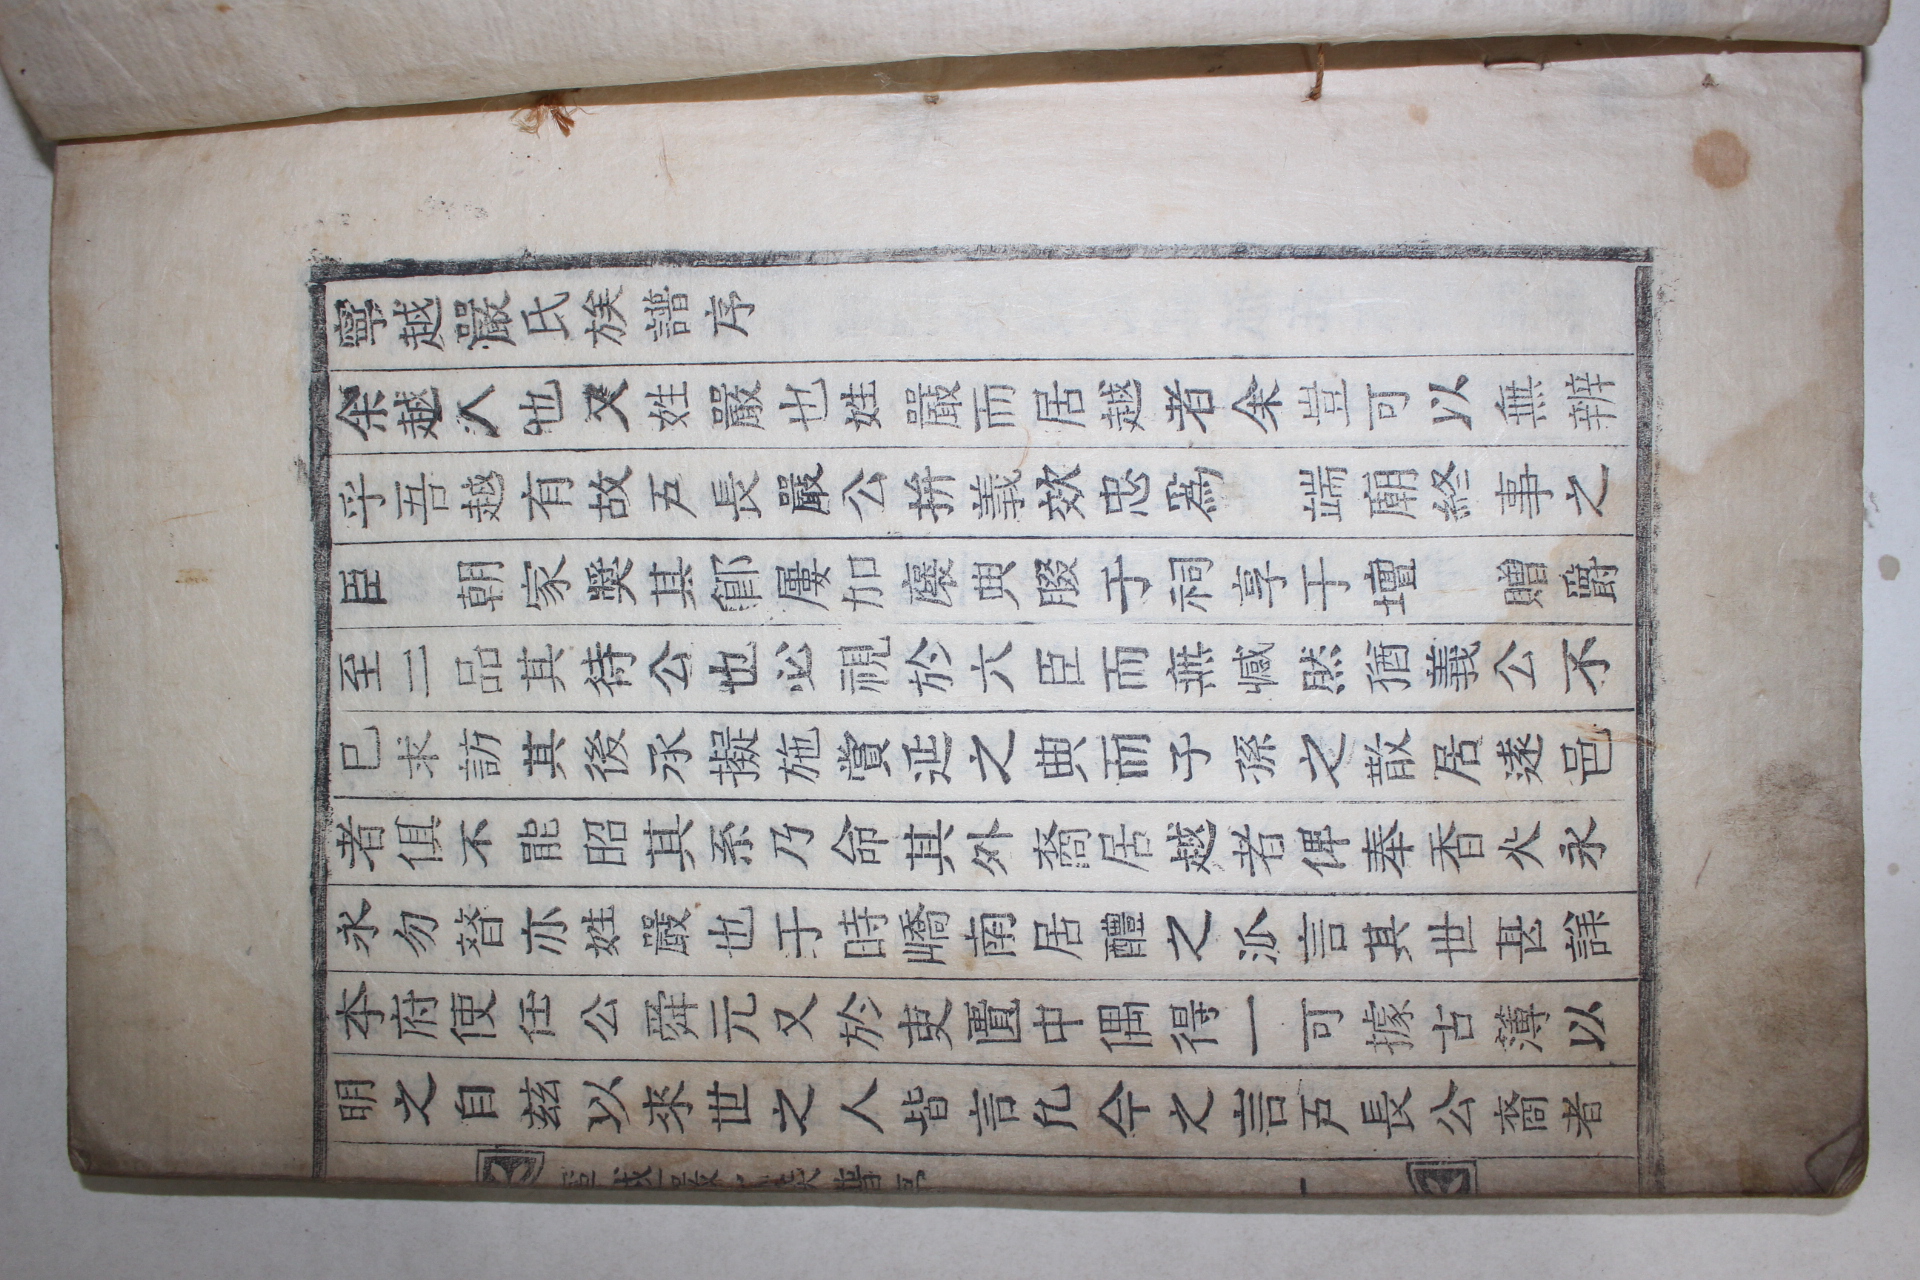 寧越嚴氏族譜序
余越人也又姓嚴也姓嚴而居越者余豈可以無辨
乎吾越有故戶長嚴公拚義效忠爲 端廟終事之
臣 朝家奬其節屢加褒典腏于祠享于壇 贈爵
至二品其待公也必視於六臣而無憾然猶義公不
已求訪其後承擬施賞延之典而子孫之散居遠邑
者俱不能昭其系乃命其外裔居越者俾奉香火永
永勿替亦姓嚴也于時嶠南居醴之派言其世甚詳
李府使任公舜元又於吏匱中偶得一可據古薄以
明之自茲以來世之人皆言凡今之言戶長公裔者
寧越嚴氏族譜序
一